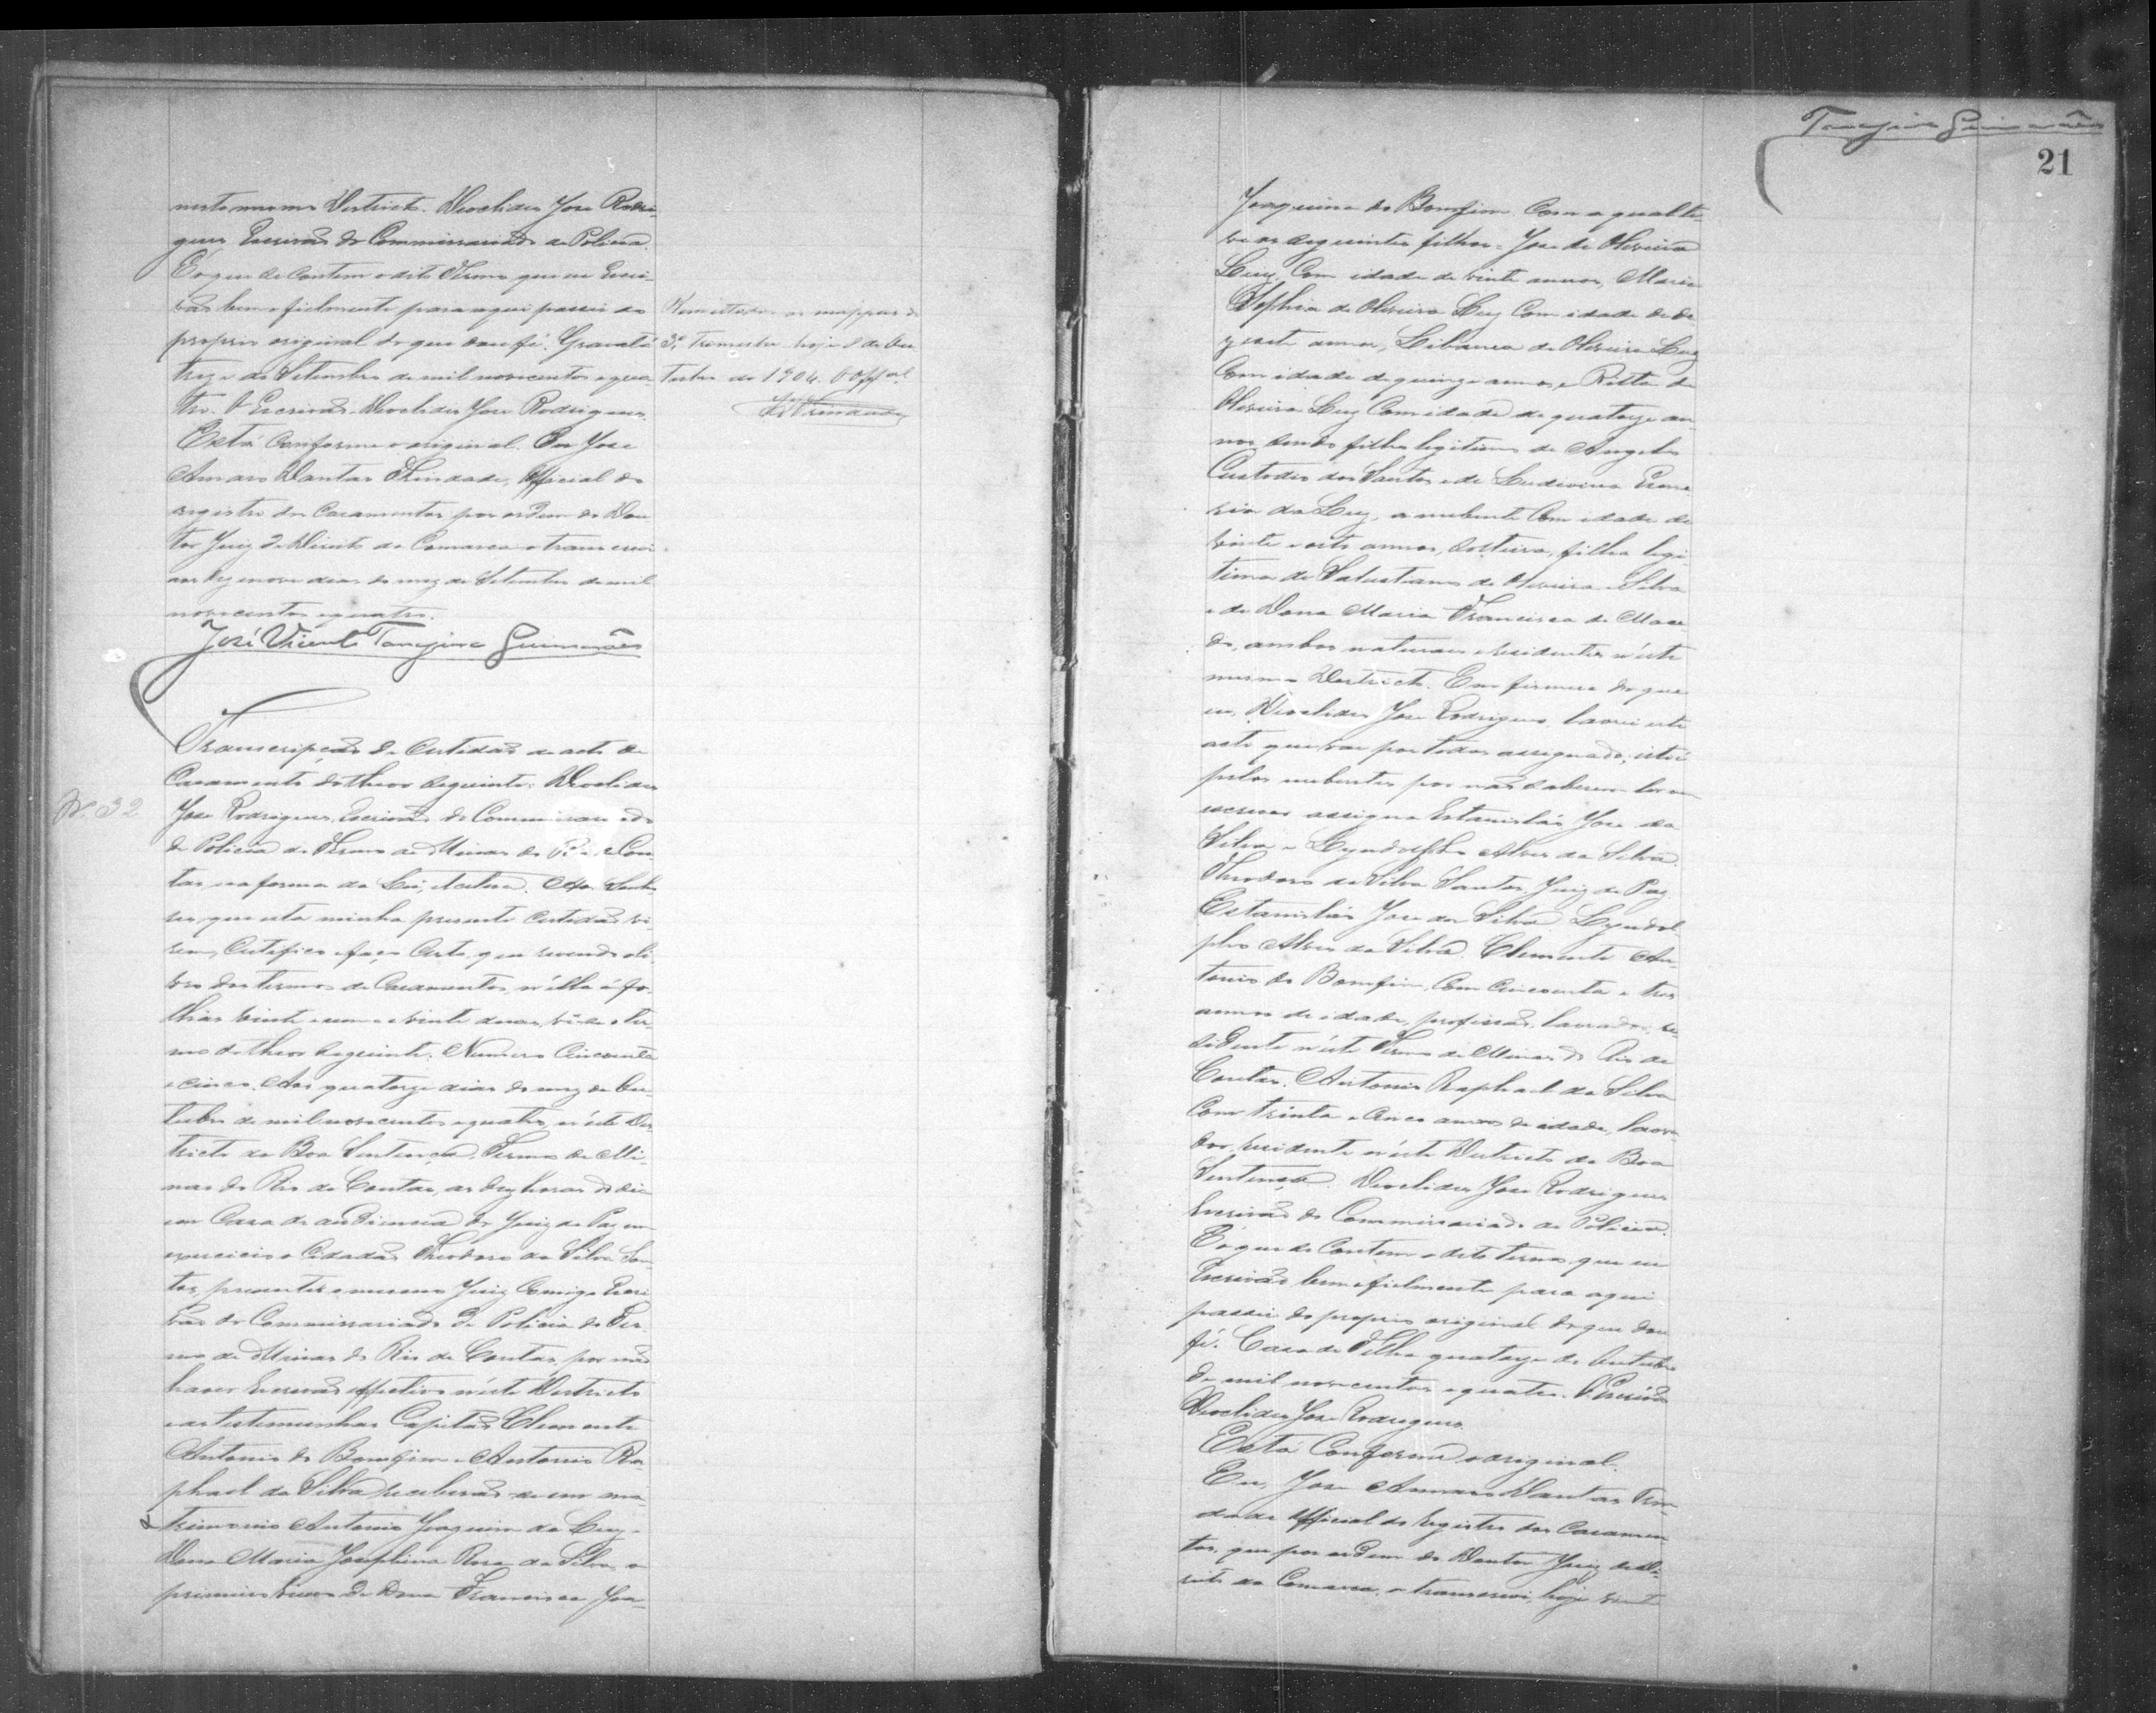 nesto mesmo Destricto. Deoclides Jose Rodri
gues Escrivaõ do Commissariado de Policia.
É o que se contem o dito Termo que eu Escri-
vaõ bem e fielmente para aqui passei do
proprio original do que dou fé. Gravatá
treze de Setembro de mil novecentos e qua-
tro. O Escrivaõ Deoclides Jose Rodrigues.
Está conforme o original. Eu Jose
Amaro Dantas Trindade, Official do
registro dos Casamentos por ordem do Dou
tor Juiz de Direito da Comarca o transcrevi
aos dezenove dias do mez de Setembro de mil
novecentos e quatro.
José Vicente Tanajura Guimarães
Remettidos os mappas do
3º Trimestre hoje 8 de Ou
tubro de 1904. O Offal
Trindade
Nº 32
Transcripçaõ da Certidaõ do acto de
Casamento do theor seguinte: Deoclides
Jose Rodrigues, Escrivaõ do Commissariado
de Policia do Termo de Minas do Rio de Con
tas, na forma da Lei, etcetera. Aos Senho
res, que esta minha presente Certidaõ vi-
rem, Certifico e faço certo, que revendo o li-
vro dos termos de Casamentos, n'elle á fo-
lhas vinte e um e vinte duas, vi-se o ter-
mo do theor seguinte: Numero Cincoenta
e cinco. Aos quatorze dias do mez de Ou-
tubro de mil novecentos e quatro, n'este Des-
tricto da Boa Sentença, Termo de Mi-
nas do Rio de Contas, as dez horas do dia
em Casa de audiencia do Juiz de Paz em
exercicio o Cidadaõ Theodoro da Silva San-
tos, presentes o mesmo Juiz Comigo Escri
vaõ do Commissariado de Policia do Ter-
mo de Minas do Rio de Contas, por naõ
haver Escrivaõ effectivo n'este Destricto
e as testemunhas Capitaõ Clemente
Antonio do Bomfim e Antonio Ra-
phael da Silva, receberaõ-se em ma-
trimonio Antonio Joaquim da Luz e
Dona Maria Josephina Rosa da Silva, o
primeiro viuvo de Dona Francisca Joa-
Tanajura Guimarães
21
Joaquina do Bomfim com a qual te
ve os seguintes filhos: Jose de Oliveira
Luz, Com idade de vinte annos, Maria
Sophia de Oliveira Luz Com idade de de
zesete annos, Libania de Oliveira Luz
Com idade de quinze annos, e Ritta de
Oliveira Luz Com idade de quatorze an
nos, sendo filho legitimo de Angelo
Custodio dos Santos e de Ludivina
da Luz, a nubente Com idade de
vinte e oito annos, solteira, filha legi-
tima de Salustiano de Oliveira e Silva
e de Dona Maria Francisca de Mace
do, ambos naturaes e residentes n'este
mesmo Destricto. Em firmesa do que
eu, Deoclides Jose Rodrigues, lavrei este
acto que vae por todos assignado, isto é
pelos nubentes por naõ saberem ler nem
escrever assigna Estanisláo Jose da
Silva e Lyndolpho Alves da Silva.
Theodoro da Silva Santos, Juiz de Paz
Estanisláo Jose da Silva. Lyndol
pho Alves da Silva. Clemente An-
tonio do Bomfim, Com Cincoenta e tres
annos de idade, profissaõ lavrador, re-
sidente n'este Termo de Minas do Rio de
Contas. Antonio Raphael da Silva
Com trinta e cinco annos de idade, lavra
dor, residente n'este Destricto da Boa
Sentença. Deoclides Jose Rodrigues
Escrivaõ do Commissariado de Policia.
É o que se contem o dito termo, que eu
Escrivaõ bem e fielmente para aqui
passei do proprio original do que dou
fé. Casa de Telha quatorze de Outubro
de mil novecentos e quatro. O Escrivaõ
Deoclides Jose Rodrigues.
Está Conforme o original.
Eu, Jose Amaro Dantas Trin-
dade Official do registro dos Casamen
tos, que por ordem do Doutor Juiz de Di-
reito da Comarca, o transcrevi, hoje vinte